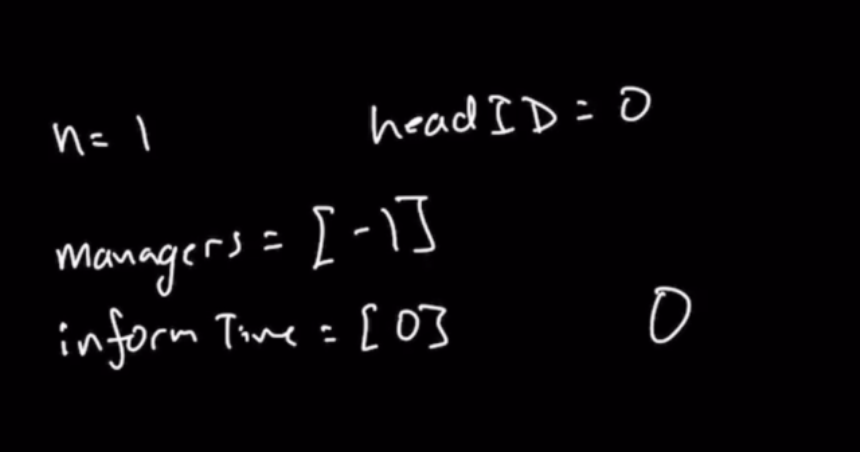 n= 1 headID = 0
managers = [-1]
inform Time = [0] 0